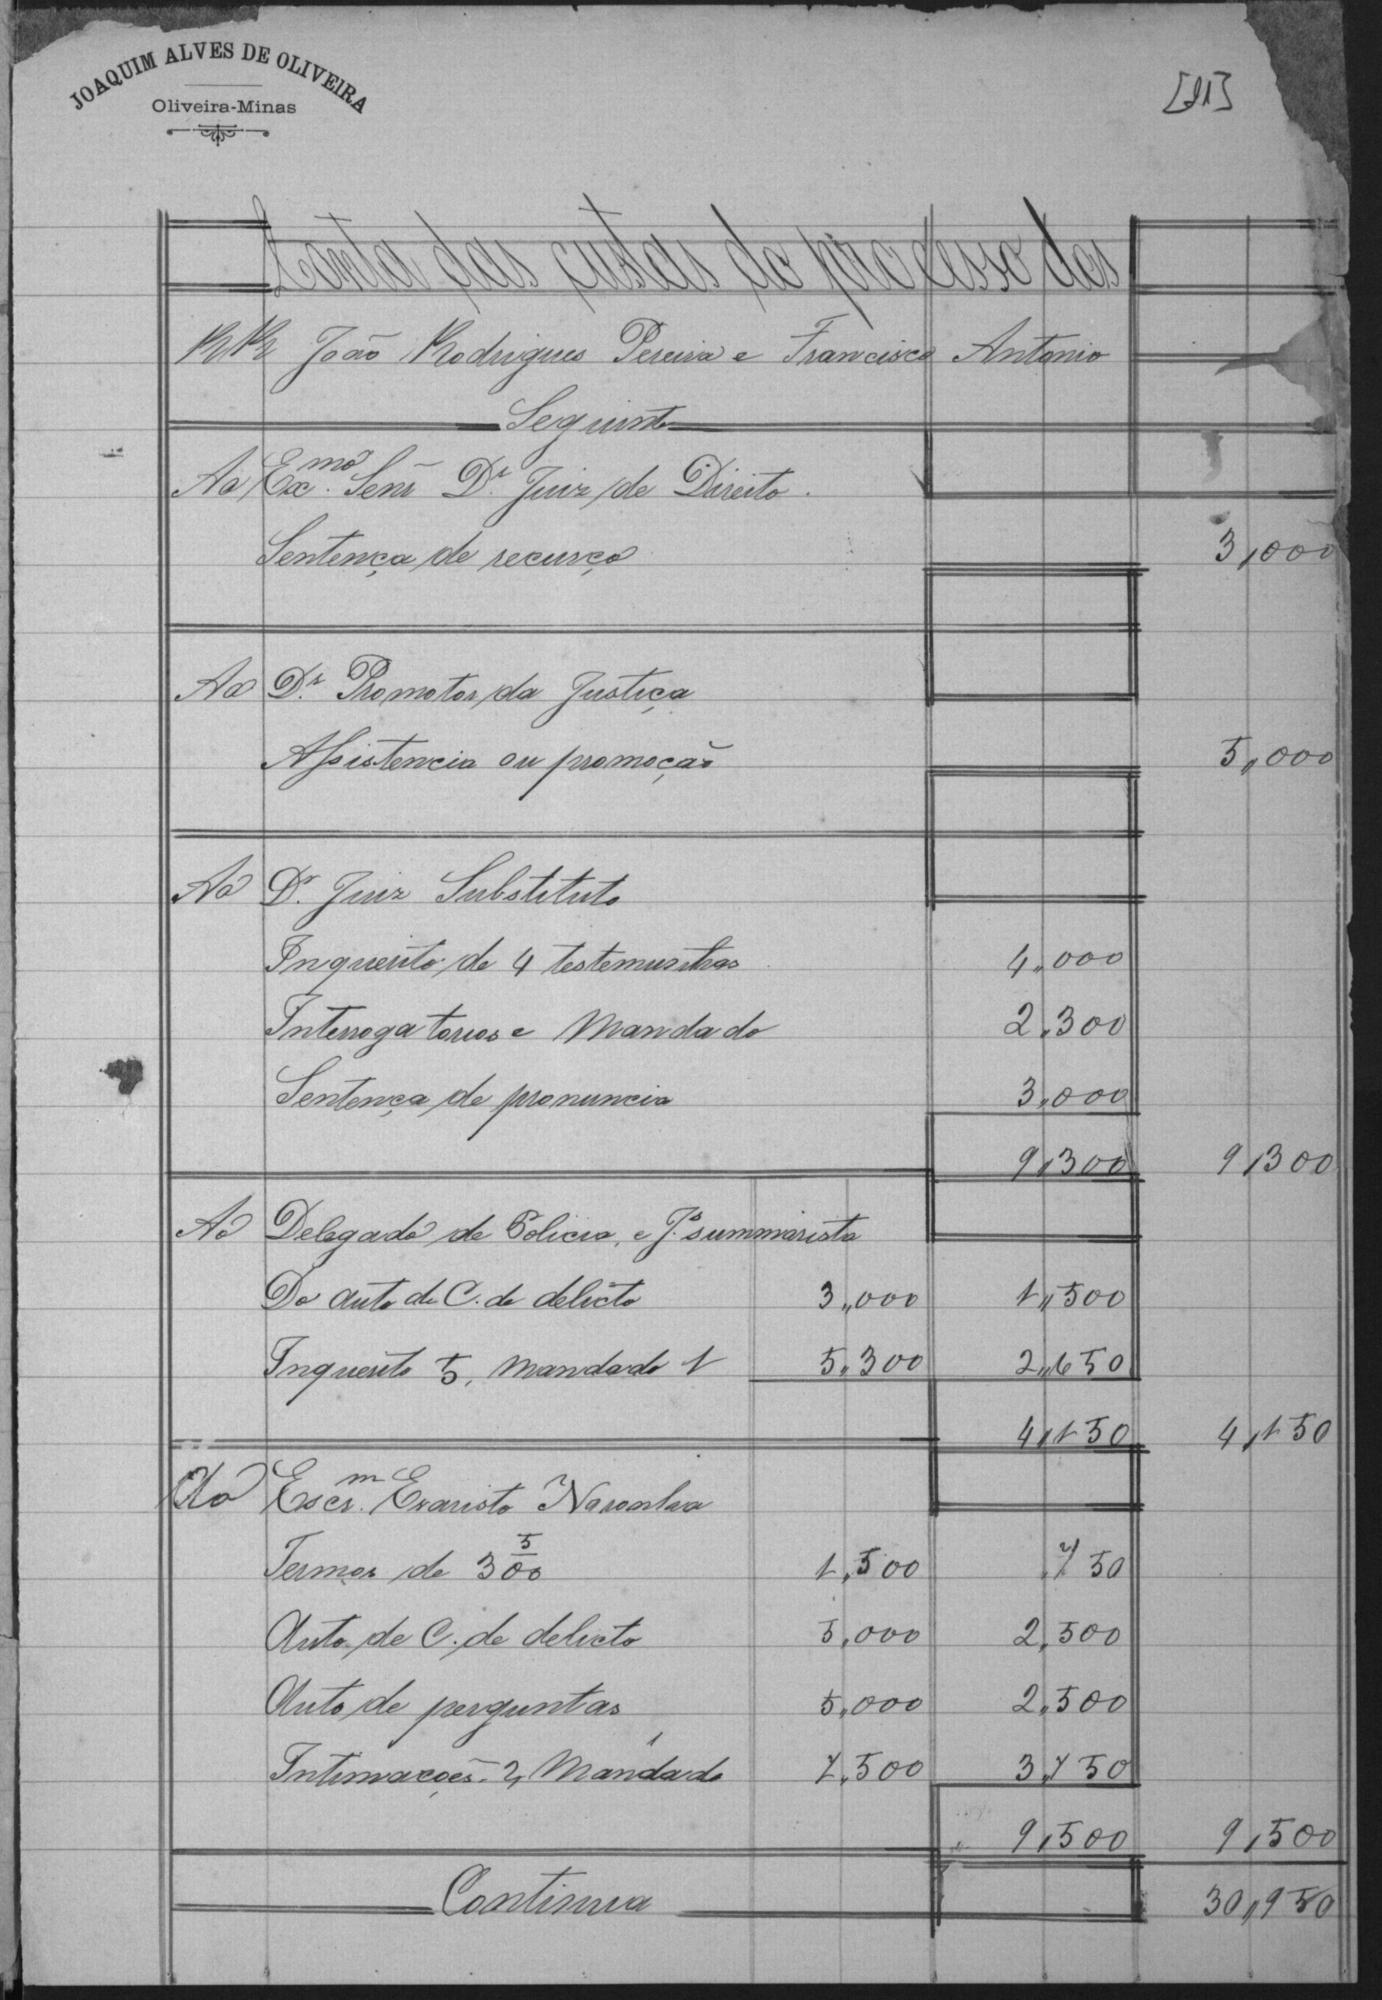 JOAQUIM ALVES DE OLIVEIRA
Oliveira-Minas
[21]
Conta das custas do processo dos
RR João Rodrigues Pereira e Francisco Antonio
Seguinte
Ao Ex.mo Senr Dr. Juiz de Direito.
Sentença de recurço 3,000
Ao Dr. Promotor da Justiça
Assistencia ou promoção 5,000
Ao Dr. Juiz Substituto
Inquerito de 4 testemunhas 4,000
Interrogatorios e Mandado 2,300
Sentença de pronuncia 3,000
9,300 9,300
Ao Delegado de Policia, e J.s summarista
Do auto de C. de delicto 3,000 1,500
Inquerito 5, Mandado 1 5,300 2,650
4,150 4,150
Ao Escr.m Evaristo
Termos de 3 5/00 1,500 ,750
Auto de C. de delicto 5,000 2,500
Auto de perguntas 5,000 2,500
Intimações 2, Mandado 1 7,500 3,750
9,500 9,500
Continua 30,950